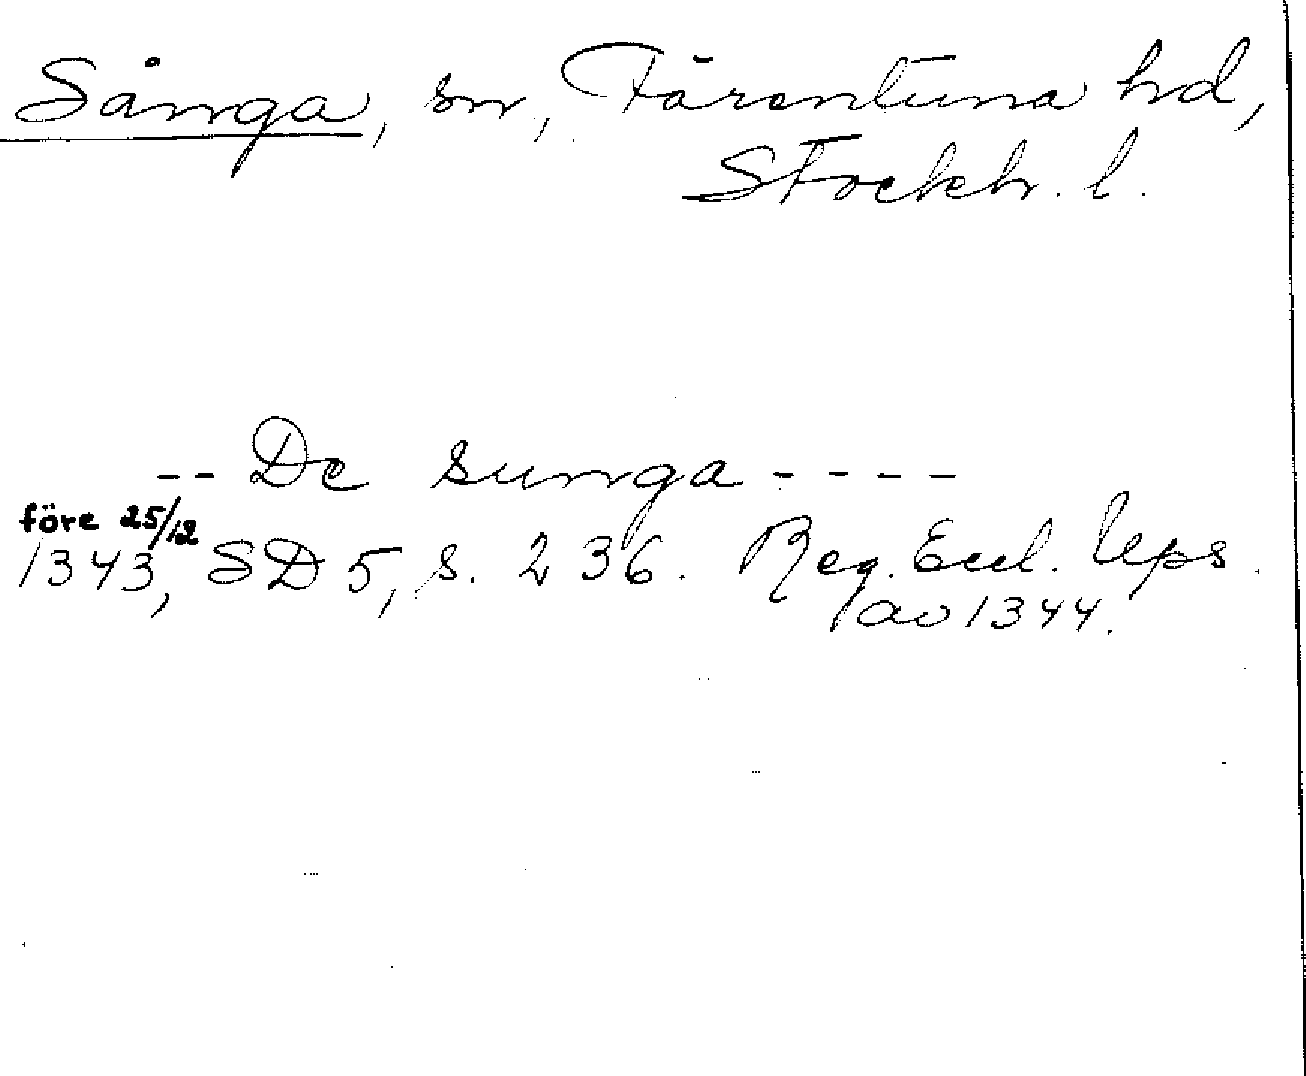 Sånga, sn, Färentuna hd,
Stockh. l.
-- De sunga ----
före 25/12
1343, SD 5, s. 236. Reg. Eccl. Ups.
av 1344.